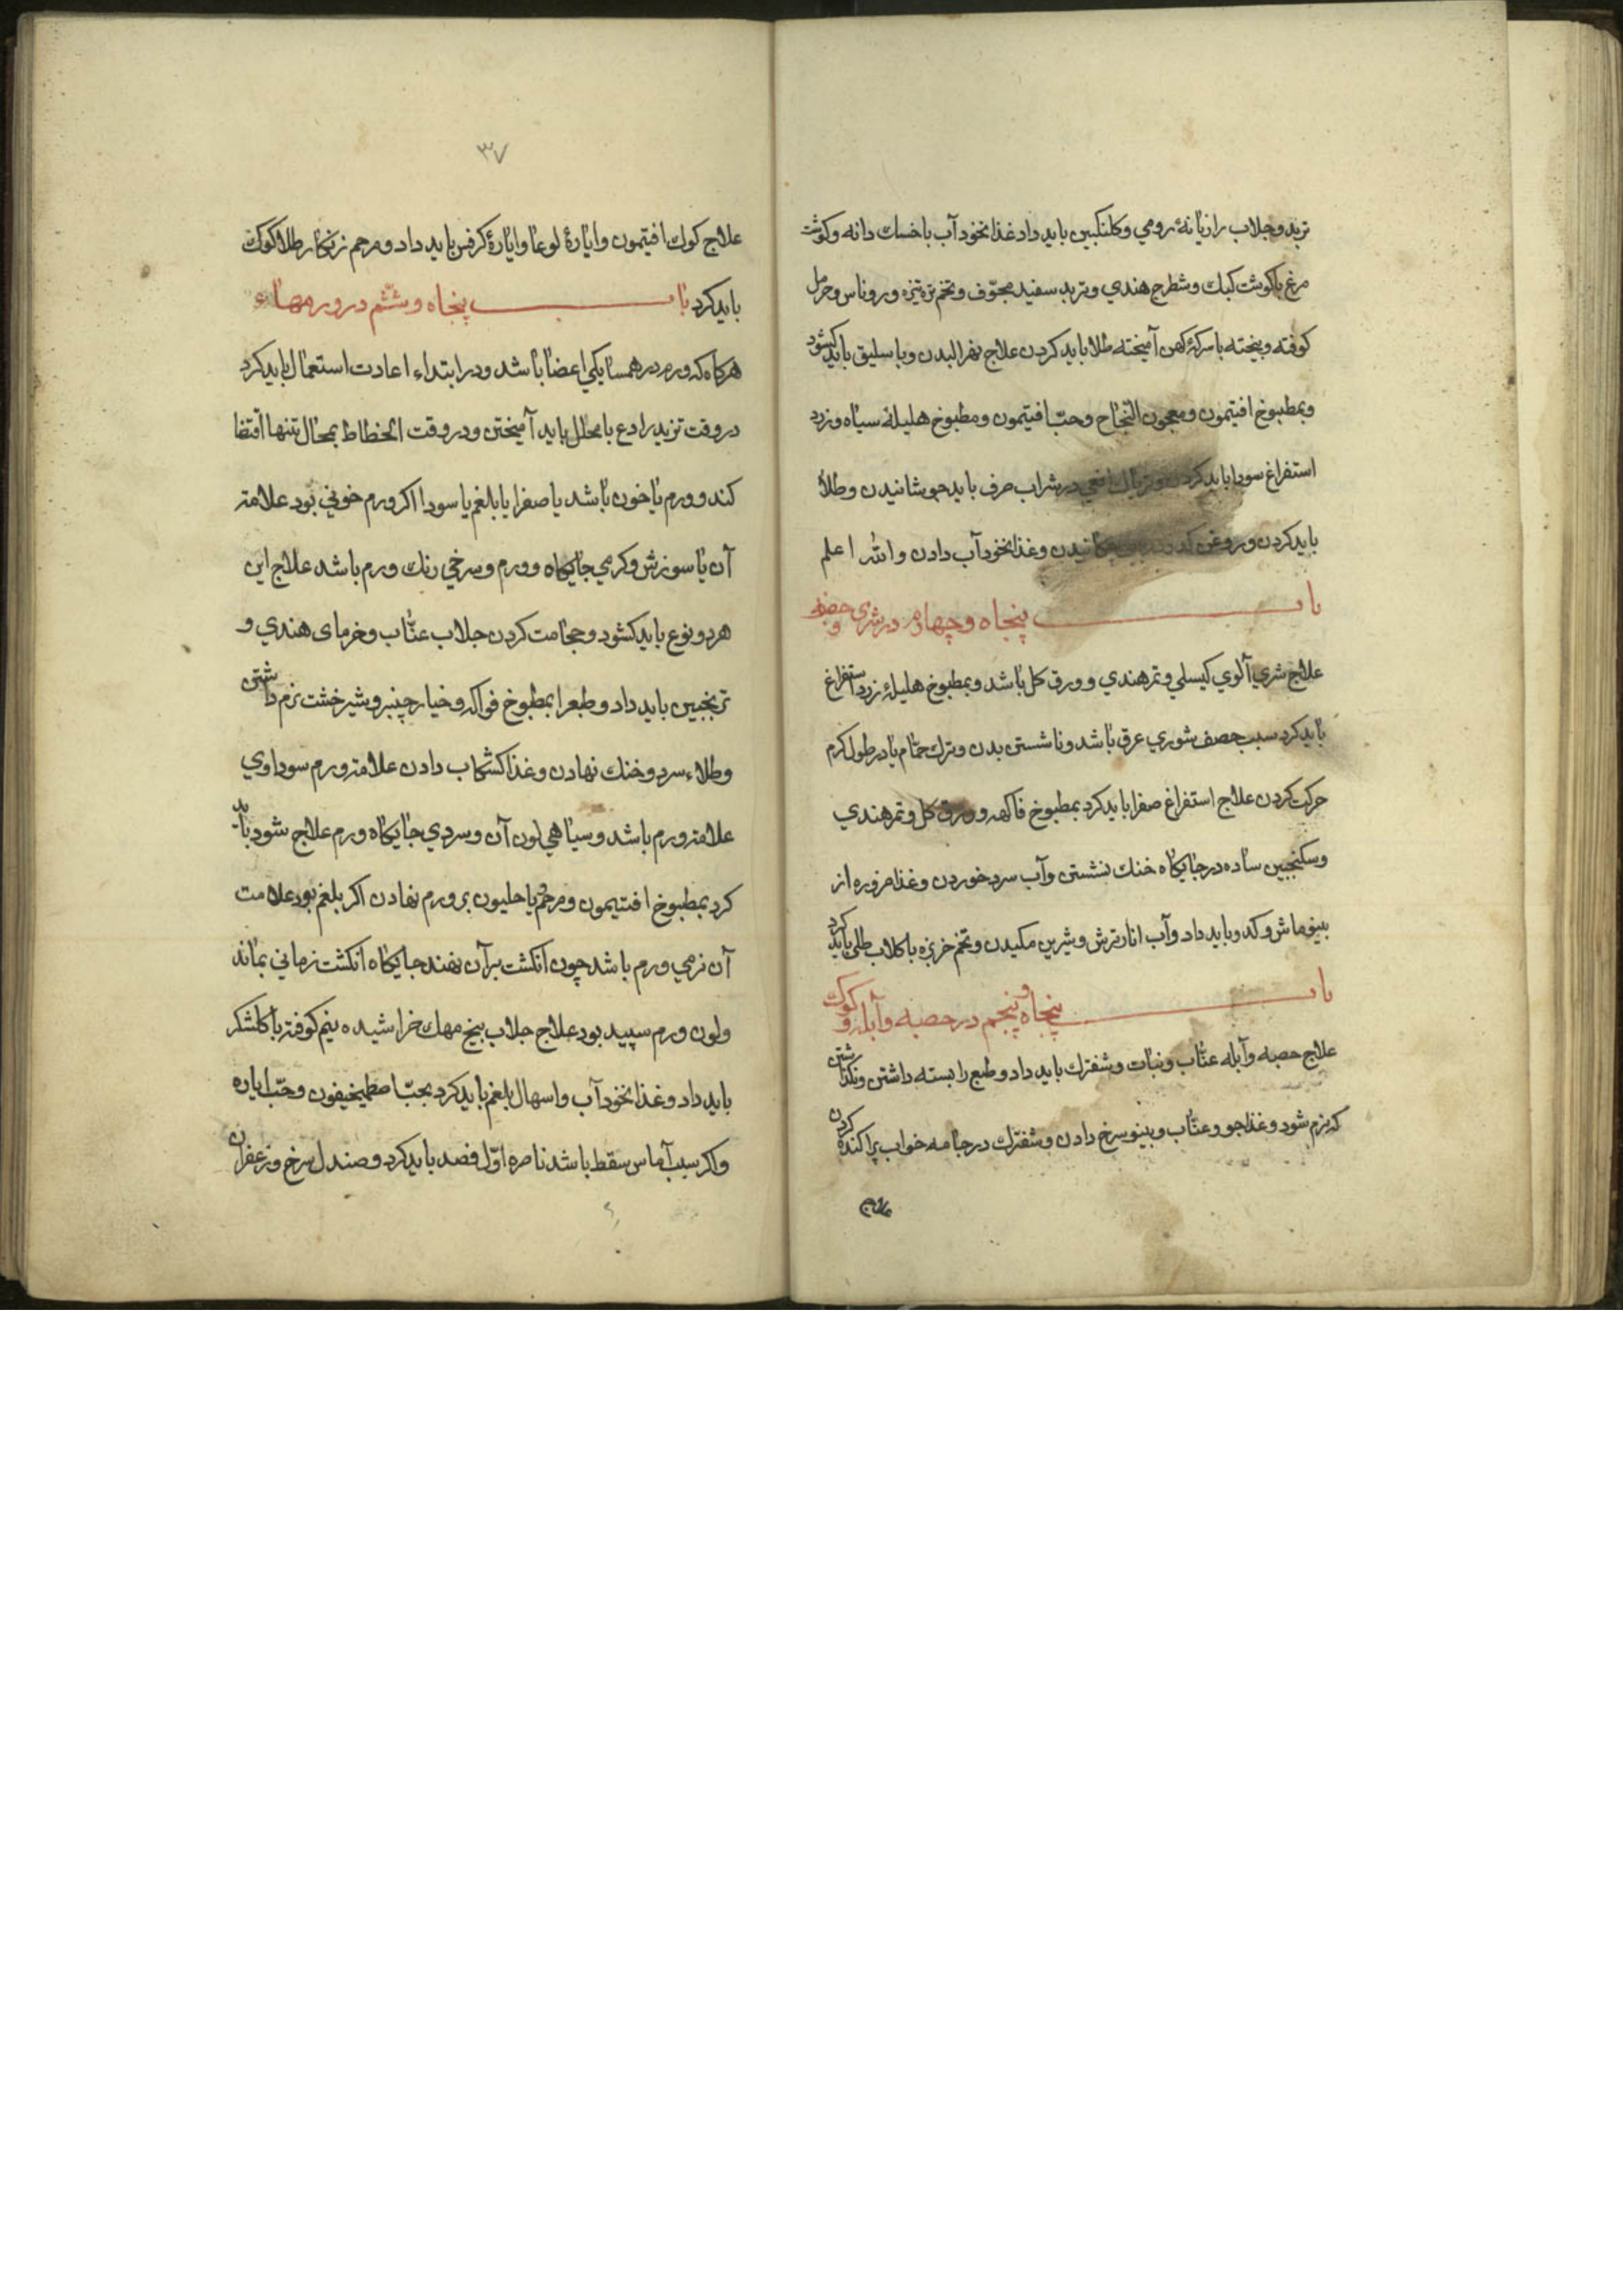 تربد وجلاب رازیانهٔ رومي وکلنکبین باید داد غذا نخود آب با خسك دانه وکوشت
مرغ یا کوشت کبك وشطرج هندي وتربد سفید مجوّف وتخم تره تیزه وروناس وحرمل
کوفته وبیخته با سرکهٔ کهن آمیخته طلا باید کردن علاج بهرالبدن وباسلیق باید کشود
وبمطبوخ افتیمون ومعجون النجاح وحبّ افتیمون ومطبوخ هلیلهٔ سیاه وزرد
استفراغ سودا باید کردن وتریاك افعي در شراب صرف باید جوشانیدن وطلا
باید کردن وروغن کدو چکانیدن وغذا نخود آب دادن والله اعلم
باب پنجاه وچهارم در شری وحصف
علاج شري آلوي کیسلي وتمرهندي وورق کل باشد وبمطبوخ هلیلهٔ زرد استفراغ
باید کرد سبب حصف شوري عرق باشد وناشستن بدن وترك حمّام یا در طول کرم
حرکت کردن علاج استفراغ صفرا باید کرد بمطبوخ فاکهه وورق کل وتمرهندي
وسکنجبین ساده در جایکاه خنك نشستن وآب سرد خوردن وغذا مزوره از
بینو ماش وکدو باید داد وآب انار ترش وشیرین مکیدن وتخم خربزه با کلاب طلي باید کرد
باب پنجاه وپنجم در حصبه وآبله وکوك
علاج حصبه وآبله عنّاب ونبات وشفترك باید داد وطبع را بسته داشتن ونکذاشتن
که نرم شود وغذا جو وعنّاب وبینو سرخ دادن وشفترك در جامه خواب پراکنده کردن
علاج
٣٧
علاج کوك افتیمون وایارهٔ لوغا وایارهٔ کرفس باید داد ومرهم زنکار طلا کوك
باید کرد باب پنجاه وششم در ورمهاء
هرکاه که ورم در همسایکي اعضا باشد ودر ابتداء اعادت استعمال باید کرد
در وقت تزید رادع با محلل باید آمیختن ودر وقت انحطاط بمحال تنها اقتضا
کند وورم یا خون باشد یا صفرا یا بلغم یا سودا اکر ورم خوني بود علامت
آن با سوزش وکرمي جایکاه وورم وسرخي رنك ورم باشد علاج این
هر دو نوع باید کشود وحجامت کردن جلاب عنّاب وخرمای هندي و
ترنجبین باید داد وطبع را بمطبوخ فواکه وخیار چنبر وشیرخشت نرم داشتن
وطلاء سرد وخنك نهادن وغذا کشکاب دادن علامت ورم سوداوي
علامت ورم باشد وسیاهي لون آن وسردي جایکاه ورم علاج شود باید
کرد بمطبوخ افتیمون ومرهم یاحلیون بر ورم نهادن اکر بلغم بود علامت
آن نرمي ورم باشد چون انکشت بر آن نهند جایکاه انکشت زماني بماند
ولون ورم سپید بود علاج جلاب بیخ مهك خراشیده نیم کوفته با کلشکر
باید داد وغذا نخود آب واسهال بلغم باید کرد بحبّ اصطمیخیقون وحبّ ایاره
واکر سبب آماس سقط باشد ناصره اوّل فصد باید کرد وصندل سرخ وزعفران